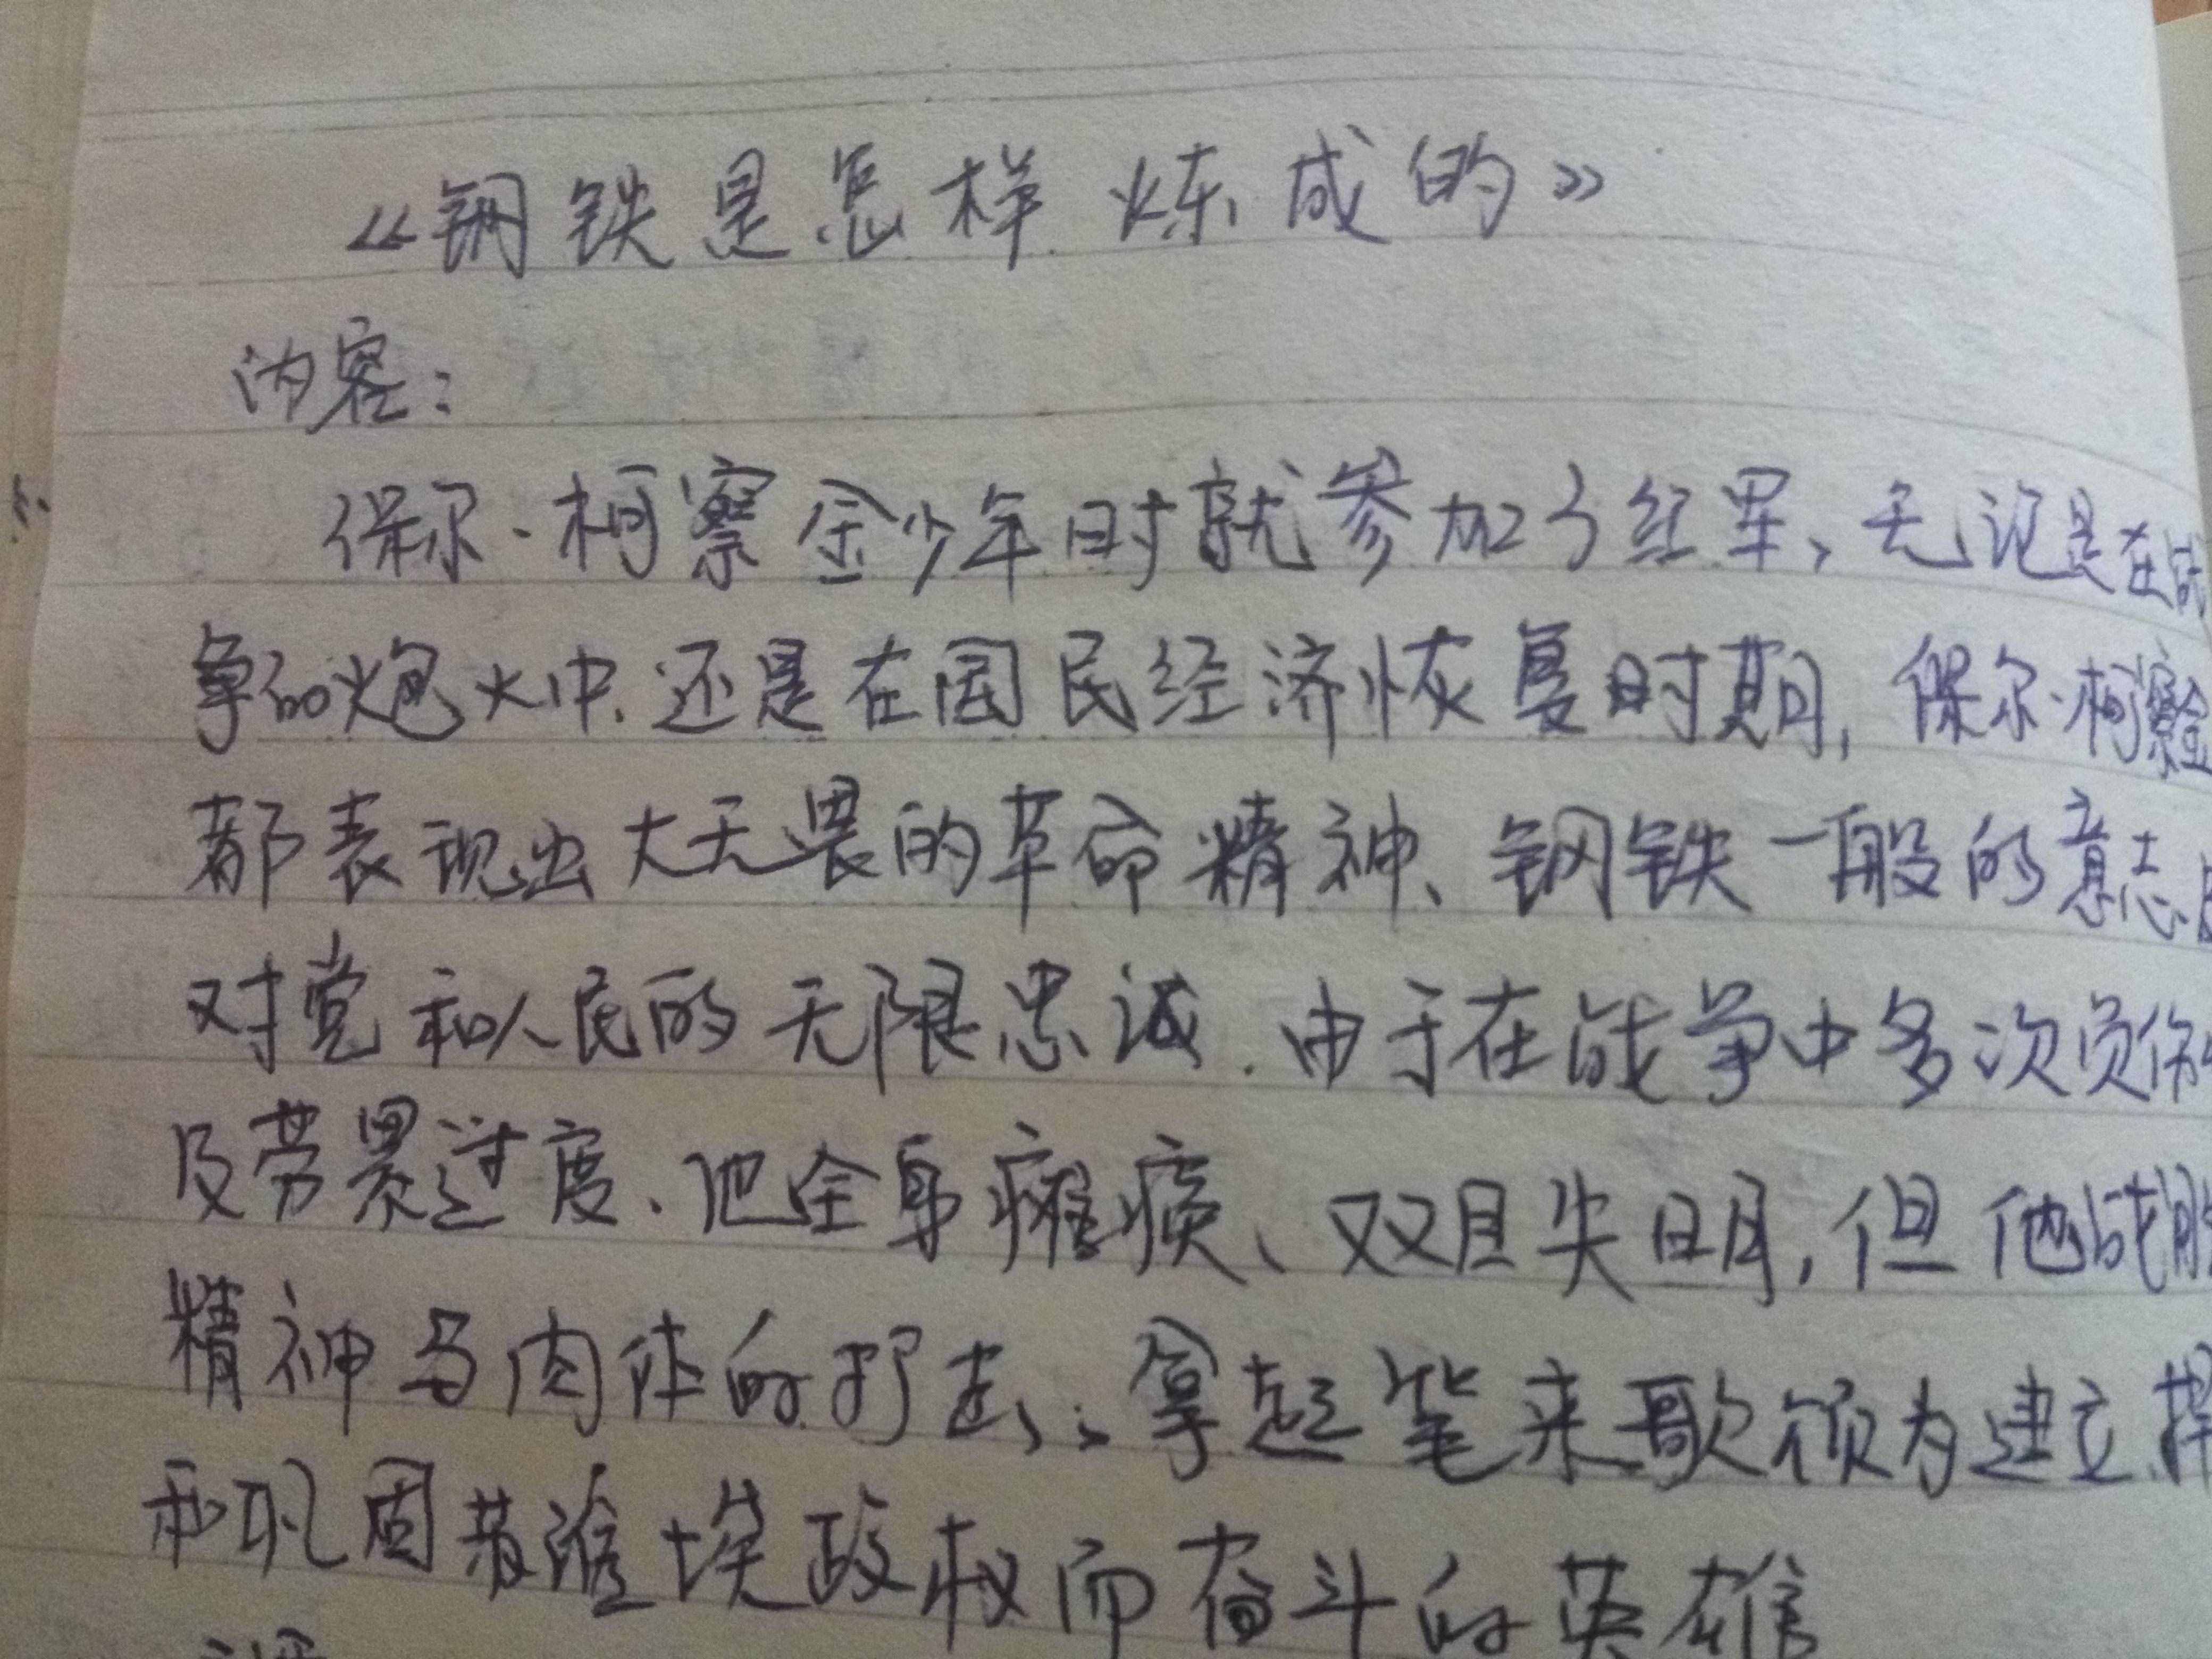 《钢铁是怎样炼成的》
内容:
保尔·柯察金少年时就参加了红军,无论是在战
争的炮火中、还是在国民经济恢复时期,保尔·柯察金
都表现出大无畏的革命精神、钢铁一般的意志
对党和人民的无限忠诚.由于在战争中多次负伤
及劳累过度、他全身瘫痪、双目失明,但他战胜
精神与肉体的打击、拿起笔来歌颂为建立、捍
和巩固苏维埃政权而奋斗的英雄